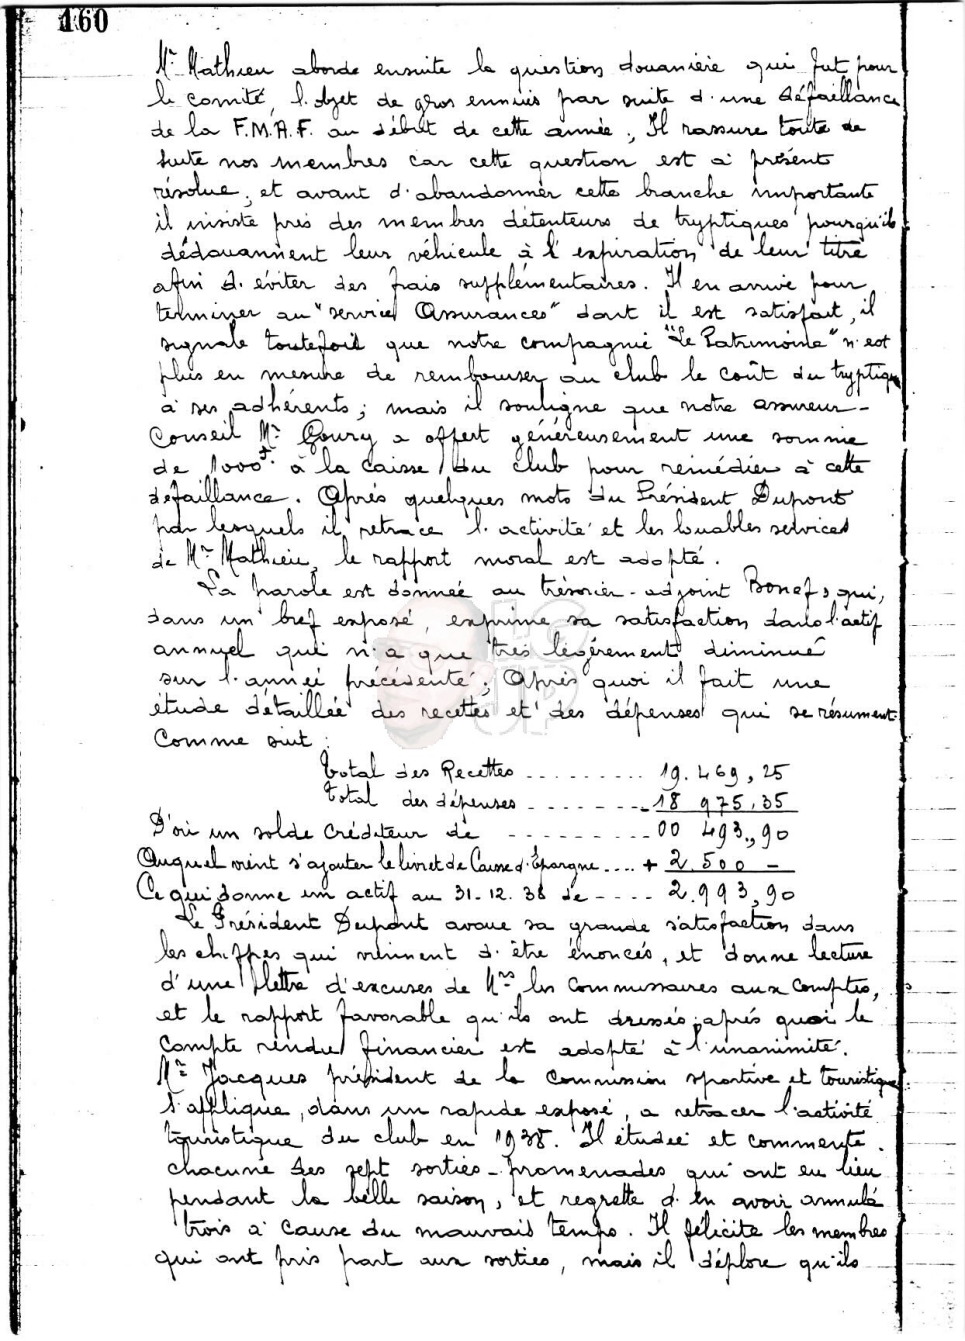 160
Mr Mathieu aborde ensuite la question douanière qui fut pour
le comité, l'objet de gros ennuis par suite d'une défaillance
de la F.M.A.F. au début de cette année, Il rassure toute de
suite nos membres car cette question est à présent
résolue, et avant d'abandonner cette branche importante
il insiste près des membres détenteurs de tryptiques pourqu'ils
dédouannent leur véhicule à l'expiration de leur titre
afin d'éviter des frais supplémentaires. Il en arrive pour
terminer au "service Assurances" dont il est satisfait, il
signale toutefois que notre compagnie "Le Patrimoine" n'est
plus en mesure de rembourser au club le coût du tryptique
à ses adhérents; mais il souligne que notre assureur-
Conseil Mr Goury a offert généreusement une somme
de 1000f. à la caisse du club pour remédier à cette
défaillance. Après quelques mots du Président Dupont
par lesquels il retrace l'activité et les louables services
de Mr Mathieu, le rapport moral est adopté.
La parole est donnée au trésorier-adjoint Bonefs qui,
dans un bref exposé, exprime sa satisfaction dans l'actif
annuel qui n'a que très légèrement diminué
sur l'année précédente; Après quoi il fait une
étude détaillée des recettes et des dépenses qui se résument
Comme suit :
LG UP
Total des Recettes .......... 19.469,25
Total des dépenses ........ - 18 975,35
D'où un solde créditeur de .......... 00 493,90
Auquel vient s'ajouter le livret de Caisse d'Epargne .... + 2.500 -
Ce qui donne un actif au 31-12.38 de ----- 2.993,90
Le Président Dupont avoue sa grande satisfaction dans
les chiffres qui viennent d'être énoncés, et donne lecture
d'une lettre d'excuses de Mrs les Commissaires aux comptes,
et le rapport favorable qu'ils ont dressés, après quoi le
Compte rendu financier est adopté à l'unanimité.
Mr Jacques président de la Commission sportive et touristique
s'applique, dans un rapide exposé, a retracer l'activité
touristique du club en 1938. Il étudie et commente
chacune des sept sorties-promenades qui ont eu lieu
pendant la belle saison, et regrette d'en avoir annulé
trois à cause du mauvais temps. Il félicite les membres
qui ont pris part aux sorties, mais il déplore qu'ils